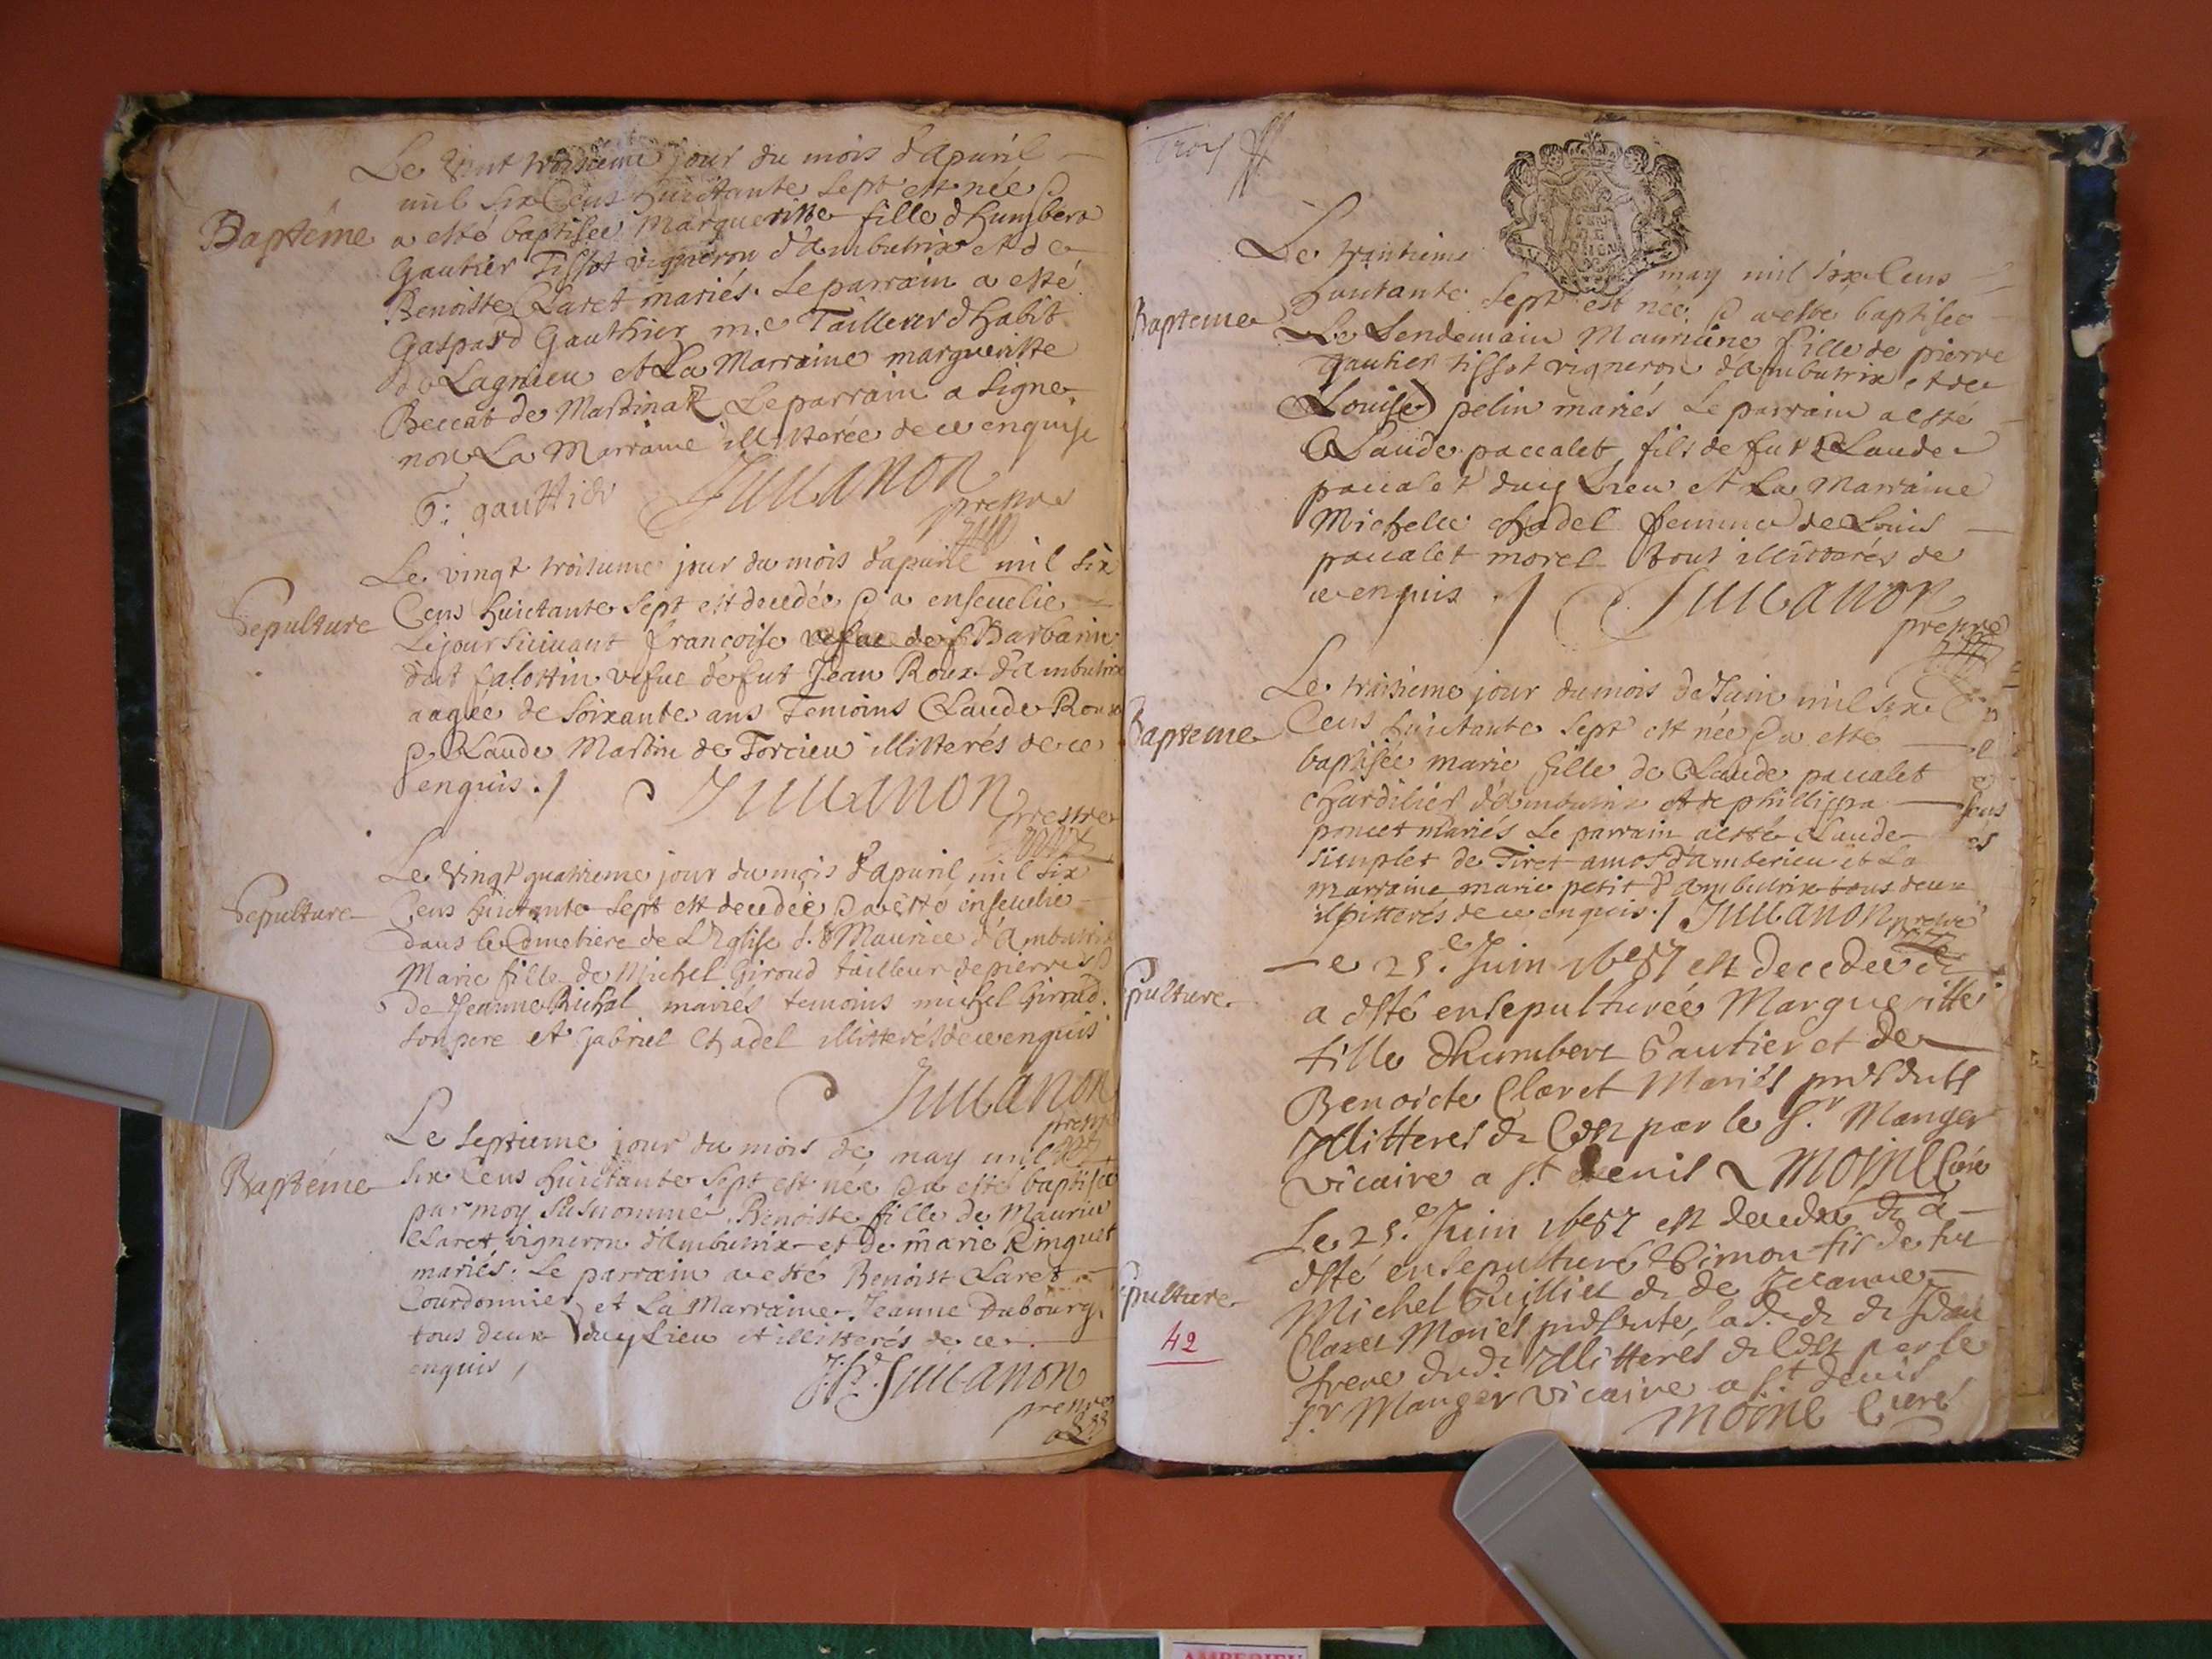 Le vint troisieme jour du mois d'apuril
mil six Cens huictante sept est née &
Baptême
a esté baptisée Margueritte fille d'humbert
Gautier Tissot vigneron d'ambutrix et de
Benoiste Claret mariés. Le parrain a esté
Gaspard Gauthier m.e Tailleur d'habit
de Lagnieu et La Marraine margueritte
Beccat de Martinaz Le parrain a signé,
non La Marraine illitterée de ce enquise
G: gauttier Jullanon
prestre
Le vingt troisieme jour du mois d'apuril mil six
Sepulture
Cens huictante sept est decedée & a enseuelie
Le jour suiuant françoise vefue de f Barbarin
dit falottin vefue de fut Jean Roux d'ambutrix
aagée de soixante ans Temoins Claude Roux
& Claude Martin de Torcieu illitterés de ce
enquis ./ Jullanon
prestre
Le vingt quatrieme jour du mois d'apuril mil six
Sepulture
Cens huictante sept est decedée & a esté enseuelie
dans le Cimetiere de L'Eglise de S. Maurice d'Ambutrix
Marie fille de Michel Giroud tailleur de pierres &
de Jeanne Richal mariés temoins michel Giroud
son pere et Gabriel Chadel illitterés de ce enquis
Jullanon
prestre
Le septieme jour du mois de may mil
Baptême
six Cens huictante sept est née & a esté baptisée
par moy susnommé Benoiste fille de Maurice
Claret vigneron d'ambutrix et de marie Ringuet
mariés. Le parrain a esté Benoist Claret
Courdonnier et La Marraine Jeanne Dubourg
tous deux duy Lieu et illitterés de ce
enquis / Jullanon
prestre
Troy
Le trantieme may mil six Cens
Bapteme
huictante sept est née & a esté baptisée
Le Lendemain Mauriane fille de pierre
gautier tissot vigneron d'ambutrix et de
Louise pelin mariés Le parrain a esté
Claude paccalet fils de fut Claude
paccalet duy Lieu et La Marraine
Michelle Chadel femme de Louis
paccalet morel tous illitterés de
ce enquis ./ Jullanon
prestre
Le troisieme jour du mois de Juin mil six
Bapteme
Cens huictante sept est née & a esté
baptisée marie fille de Claude paccalet
Chardilier d'ambutrix et de phillippa
poncet mariés Le parrain a esté Claude
simplet de Tiret d'amberieu et La
marraine marie petit d'ambutrix tous deux
illitterés de ce enquis ./ Jullanon prestre
e 25.e Juin 1687 est decedee &
pulture
a esté ensepulturée Margueritte
fille d'humbert Gautier et de
Benoicte Claret Mariés présents
Illitteres & Cest par le Sr. Manger
vicaire a st. denis Moine Curé
Le 25.e Juin 1687 est decedé & a
esté ensepulturé Simon fis de fut
pulture
Michel Guilliet & de Jeanne
Claret Mariés présente, lad. & de Jean
42
frere dud. Illitterés & Cest par le
Sr Manger vicaire a st denis
Moine Curé